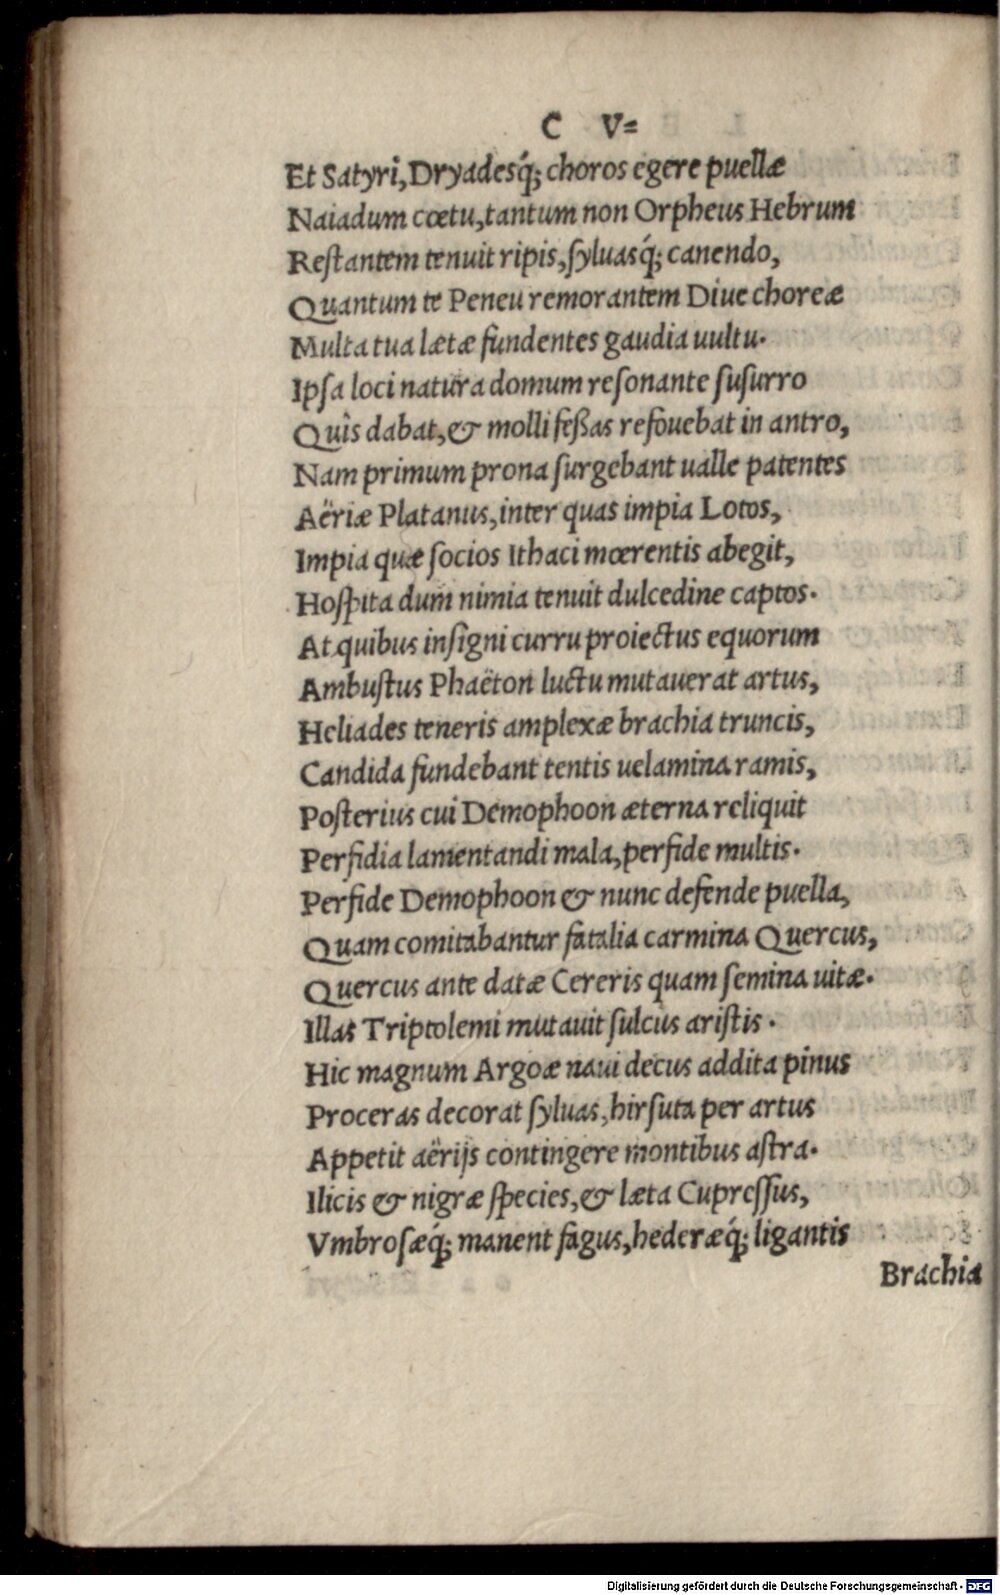 C V=
Et Satyri, Dryadesq́; choros egere puellæ
Naiadum cœtu, tantum non Orpheus Hebrum
Restantem tenuit ripis, syluasq́; canendo,
Quantum te Peneu remorantem Diue choreæ
Multa tua lætæ fundentes gaudia uultu.
Ipsa loci natura domum resonante susurro
Quìs dabat, & molli feßas refouebat in antro,
Nam primum prona surgebant ualle patentes
Aëriæ Platanus, inter quas impia Lotos,
Impia quæ socios Ithaci mœrentis abegit,
Hospita dum nimia tenuit dulcedine captos.
At quibus insigni curru proiectus equorum
Ambustus Phaëton luctu mutauerat artus,
Heliades teneris amplexæ brachia truncis,
Candida fundebant tentis uelamina ramis,
Posterius cui Demophoon æterna reliquit
Perfidia lamentandi mala, perfide multis.
Perfide Demophoon & nunc defende puella,
Quam comitabantur fatalia carmina Quercus,
Quercus ante datæ Cereris quam semina uitæ.
Illas Triptolemi mutauit sulcus aristis.
Hic magnum Argoæ naui decus addita pinus
Proceras decorat syluas, hirsuta per artus
Appetit aërijs contingere montibus astra.
Ilicis & nigræ species, & læta Cupressus,
Vmbrosæq́; manent fagus, hederæq́; ligantis
Brachia
Digitalisierung gefördert durch die Deutsche Forschungsgemeinschaft - DFG